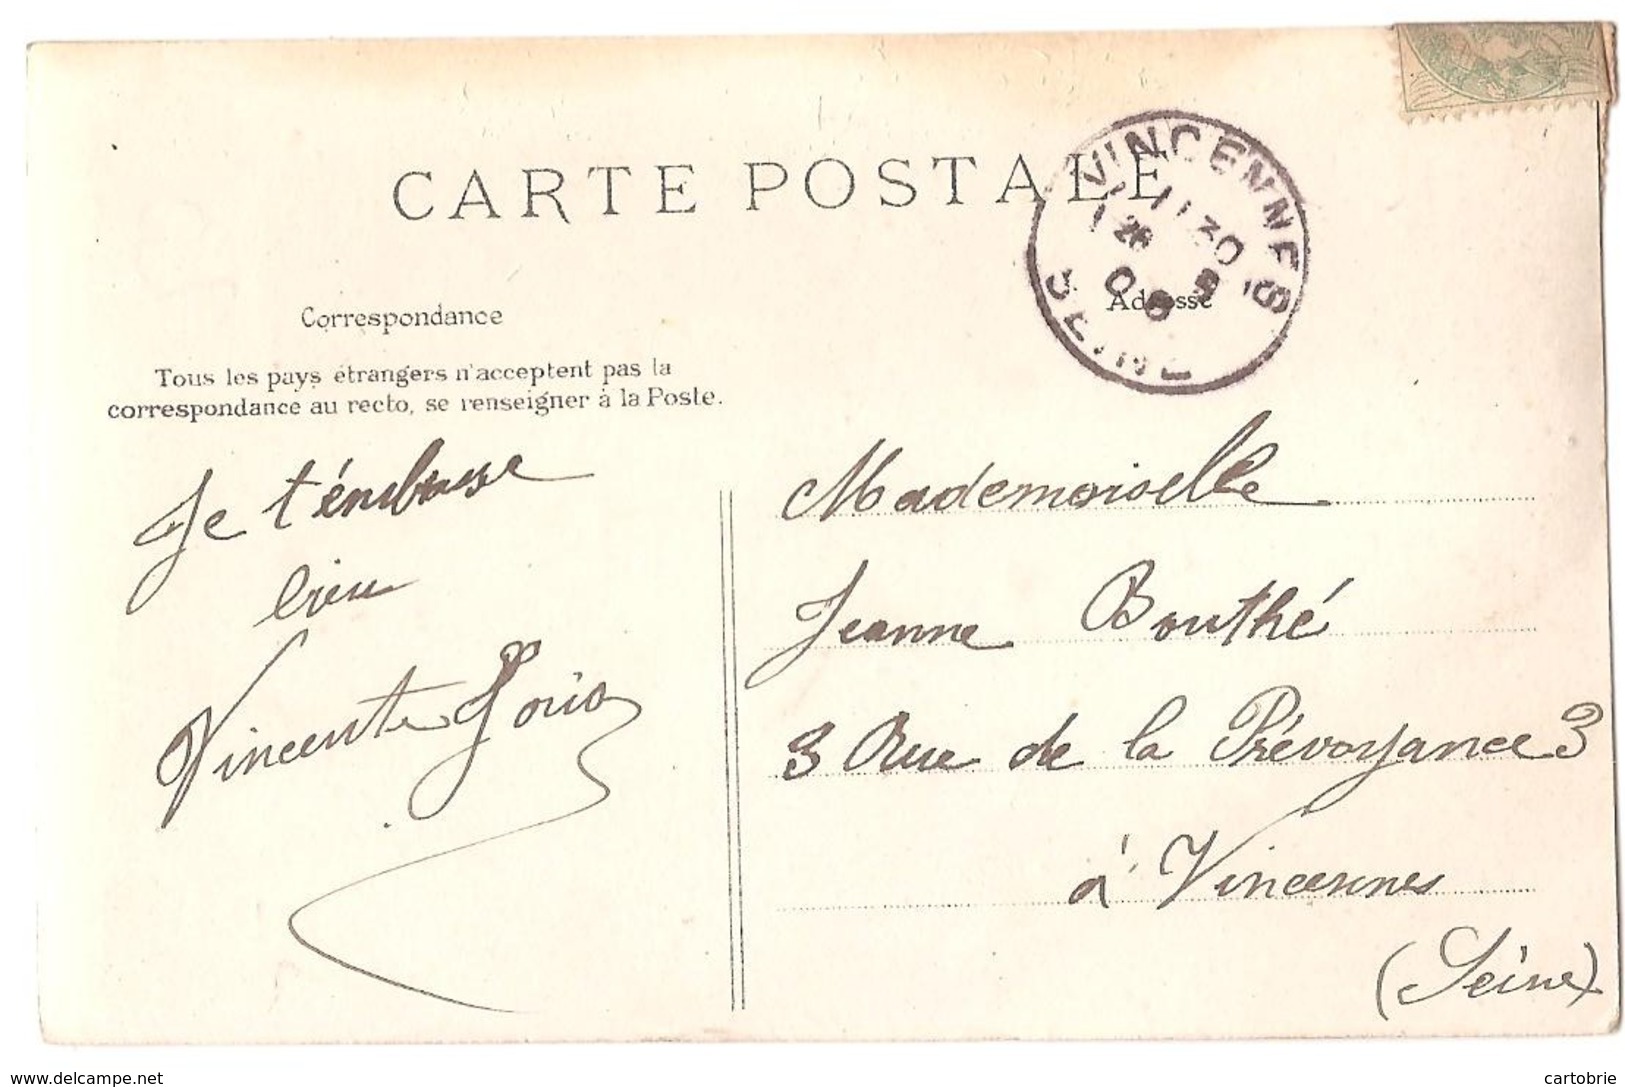 CARTE POSTALE
VINCENNES
11 30
26
SEINE
Correspondance
Adresse
Tous les pays étrangers n'acceptent pas la
correspondance au recto, se renseigner à la Poste.
Je t'émbrasse
bien
Vincente Louis
Mademoiselle
Jeanne Bouthé
3 Rue de la Prévoyance 3
à Vincennes
(Seine)
www.delcampe.net
cartobrie